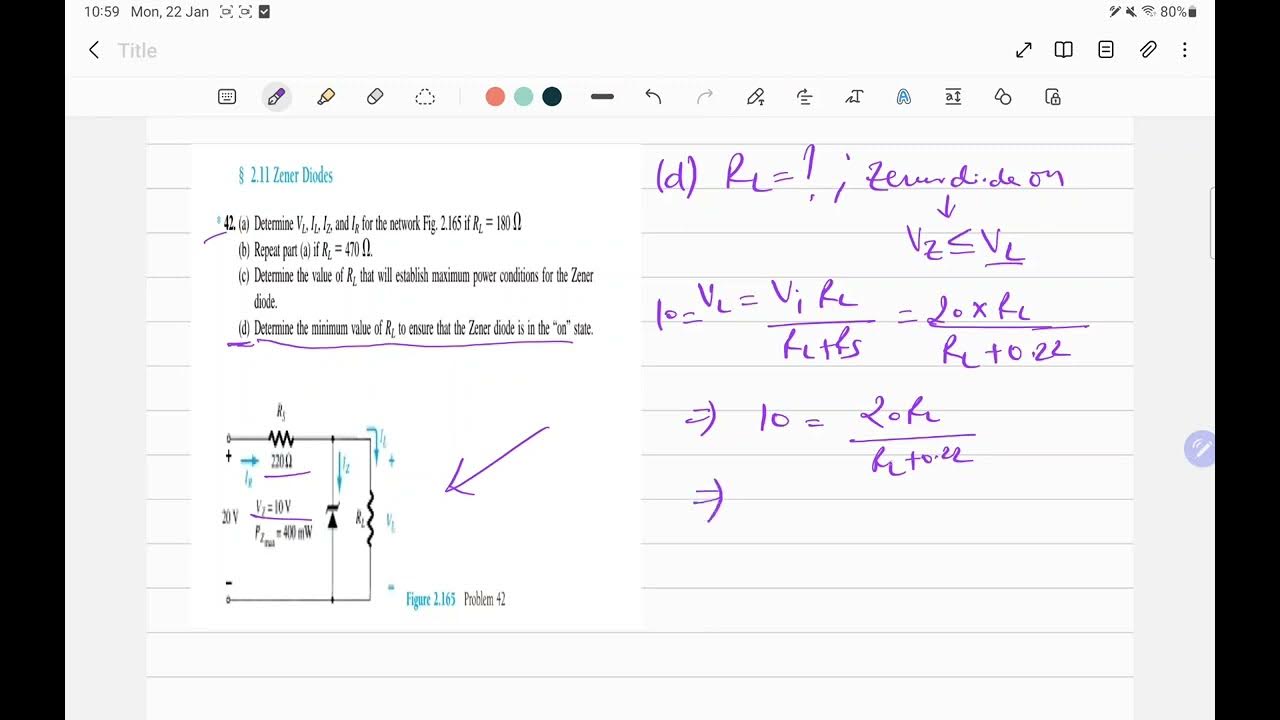 10:59 Mon, 22 Jan
80%
Title
§ 2.11 Zener Diodes
*42. (a) Determine V_L, I_L, I_Z, and I_R for the network Fig. 2.165 if R_L = 180 Ω
(b) Repeat part (a) if R_L = 470 Ω.
(c) Determine the value of R_L that will establish maximum power conditions for the Zener
diode.
(d) Determine the minimum value of R_L to ensure that the Zener diode is in the “on” state.
R_S
220 Ω
+
I_R
20 V
V_Z = 10 V
P_Zmax = 400 mW
–
I_Z
I_L
+
R_L
V_L
–
Figure 2.165 Problem 42
(d) R_L = ? ; Zener diode on
↓
V_Z ≤ V_L
10 = V_L = V_i R_L / R_L + R_S = 20 × R_L / R_L + 0.22
⇒ 10 = 20 R_L / R_L + 0.22
⇒